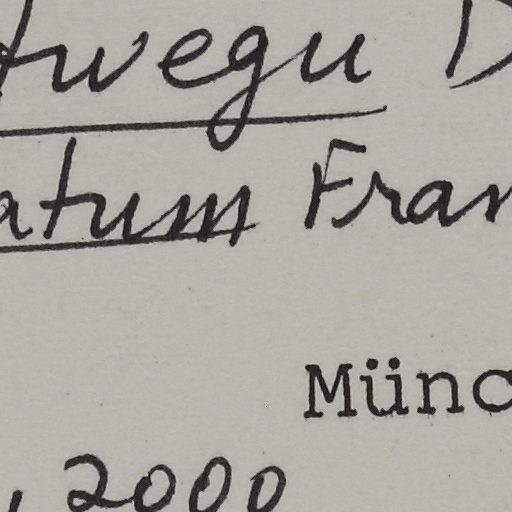 twegu D
atum Fran
Münc
, 2000